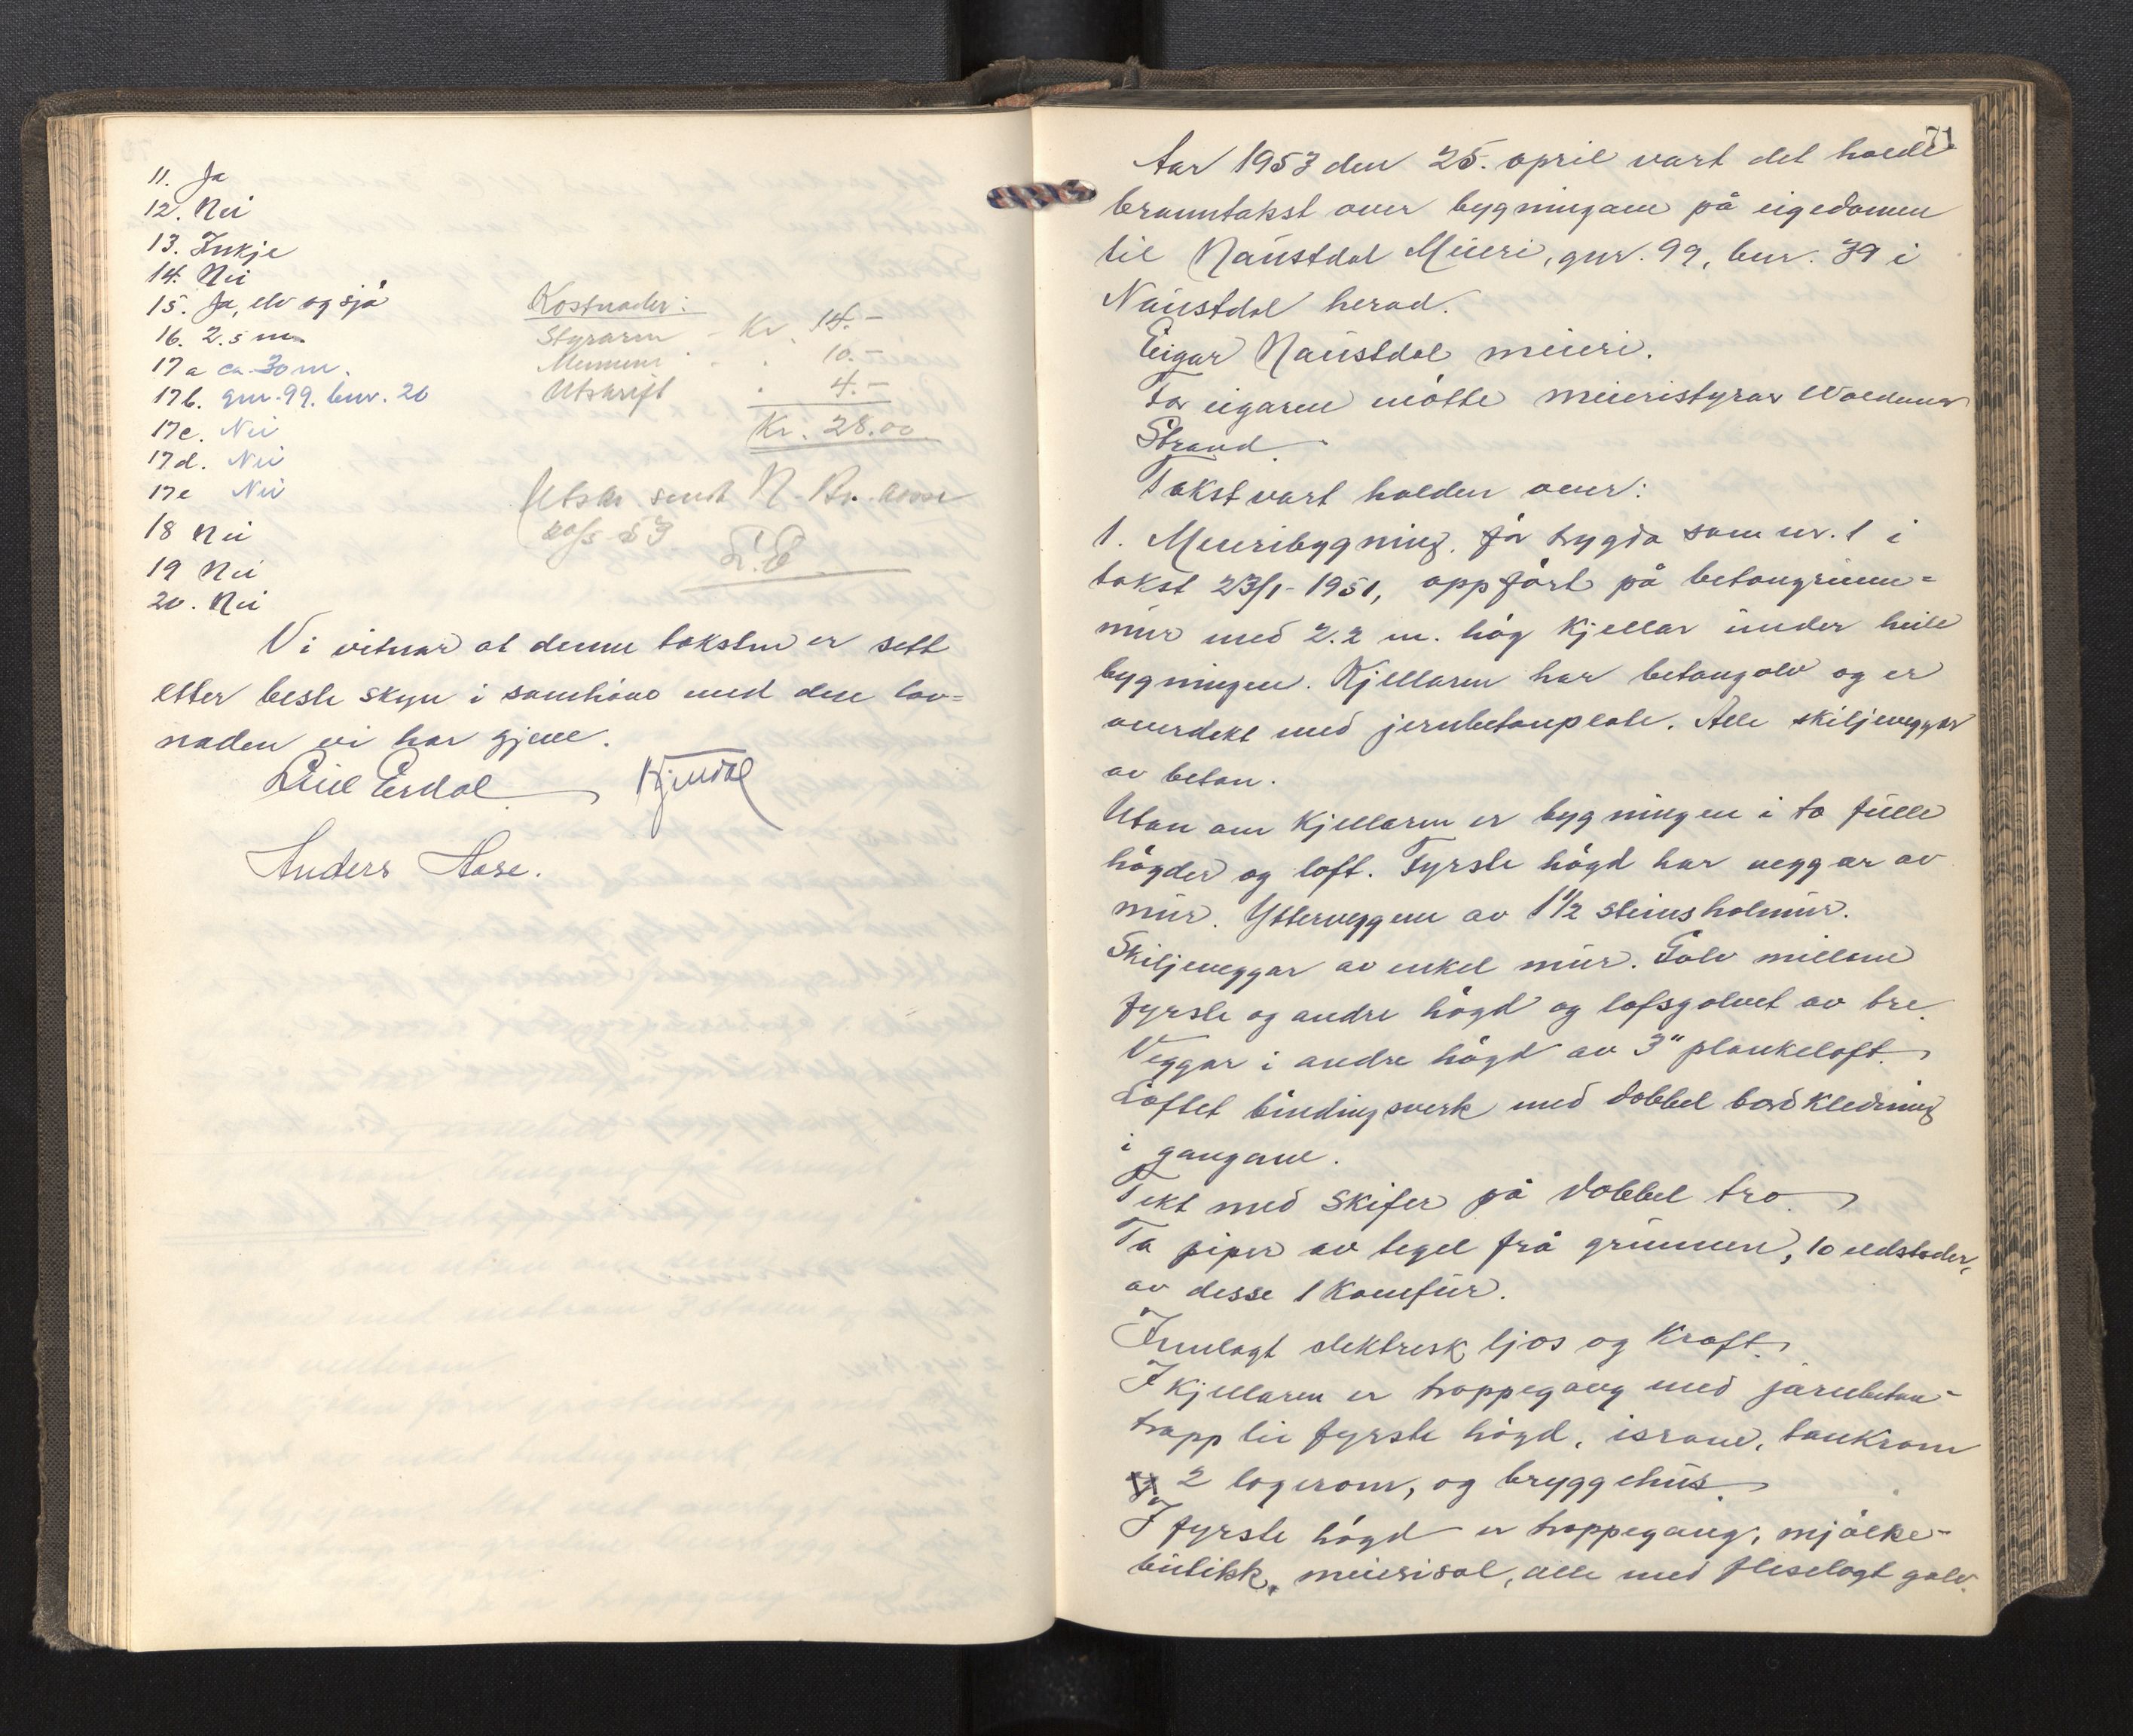 11. Ja
12. Nei
13. Inkje
14. Nei
15. Ja, elv og sjø
16. 2.5 m
17a ca 30 m.
17b. gnr. 99. bnr. 20
17c. Nei
17d. Nei
17e Nei
18 Nei
19 Nei
20. Nei
Kostnader:
Styraren - Kr. 14.-
Mennene " 10.-
Utskrift " 4.-
Kr. 28.00
Utskr. sendt N. Br. kasse
53
L.E
Vi vitnar at denne taksten er sett
etter beste skyn i samhøve med den lov-
naden vi har gjeve.
Leiv Erdal
Anders Aase.
71
Aar 1953 den 25. april vart det halde
branntakst over bygningane på eigedomen
til Naustdal Meieri, gnr. 99, bnr. 39 i
Naustdal herad.
Eigar Naustdal meieri.
For eigaren møtte meieristyrar Waldemar
Strand.
Takst vart halden over:
1. Meieribygning, før bygda som nr. 1 i
takst 23/1-1951, oppført på betongrunn-
mur med 2.2 m. høg kjellar under heile
bygningen. Kjellaren har betongolv og er
overdekt med jernbetonplate. Alle skiljeveggar
av beton.
Utan om kjellaren er bygningen i to fulle
høgder og loft. Fyrste høgd har veggar av
mur. Ytterveggene av 1 1/2 steins holmur.
Skiljeveggar av enkel mur. Golv millom
fyrste og andre høgd og lofsgolvet av tre.
Veggar i andre høgd av 3" plankeloft.
Loftet bindingsverk med dobbel bordkledning
i gangane.
Tekt med skifer på dobbel tro.
To piper av tegel frå grunnen, 10 eldstader,
av desse 1 komfur.
Innlagt elektrisk ljos og kraft.
I kjellaren er trappegang med jarnbeton-
trapp til fyrste høgd, isrom, tankrom
2 lagerom, og bryggehus.
I fyrste høgd er trappegang, mjølke-
butikk, meierisal, alle med fliselagt golv.